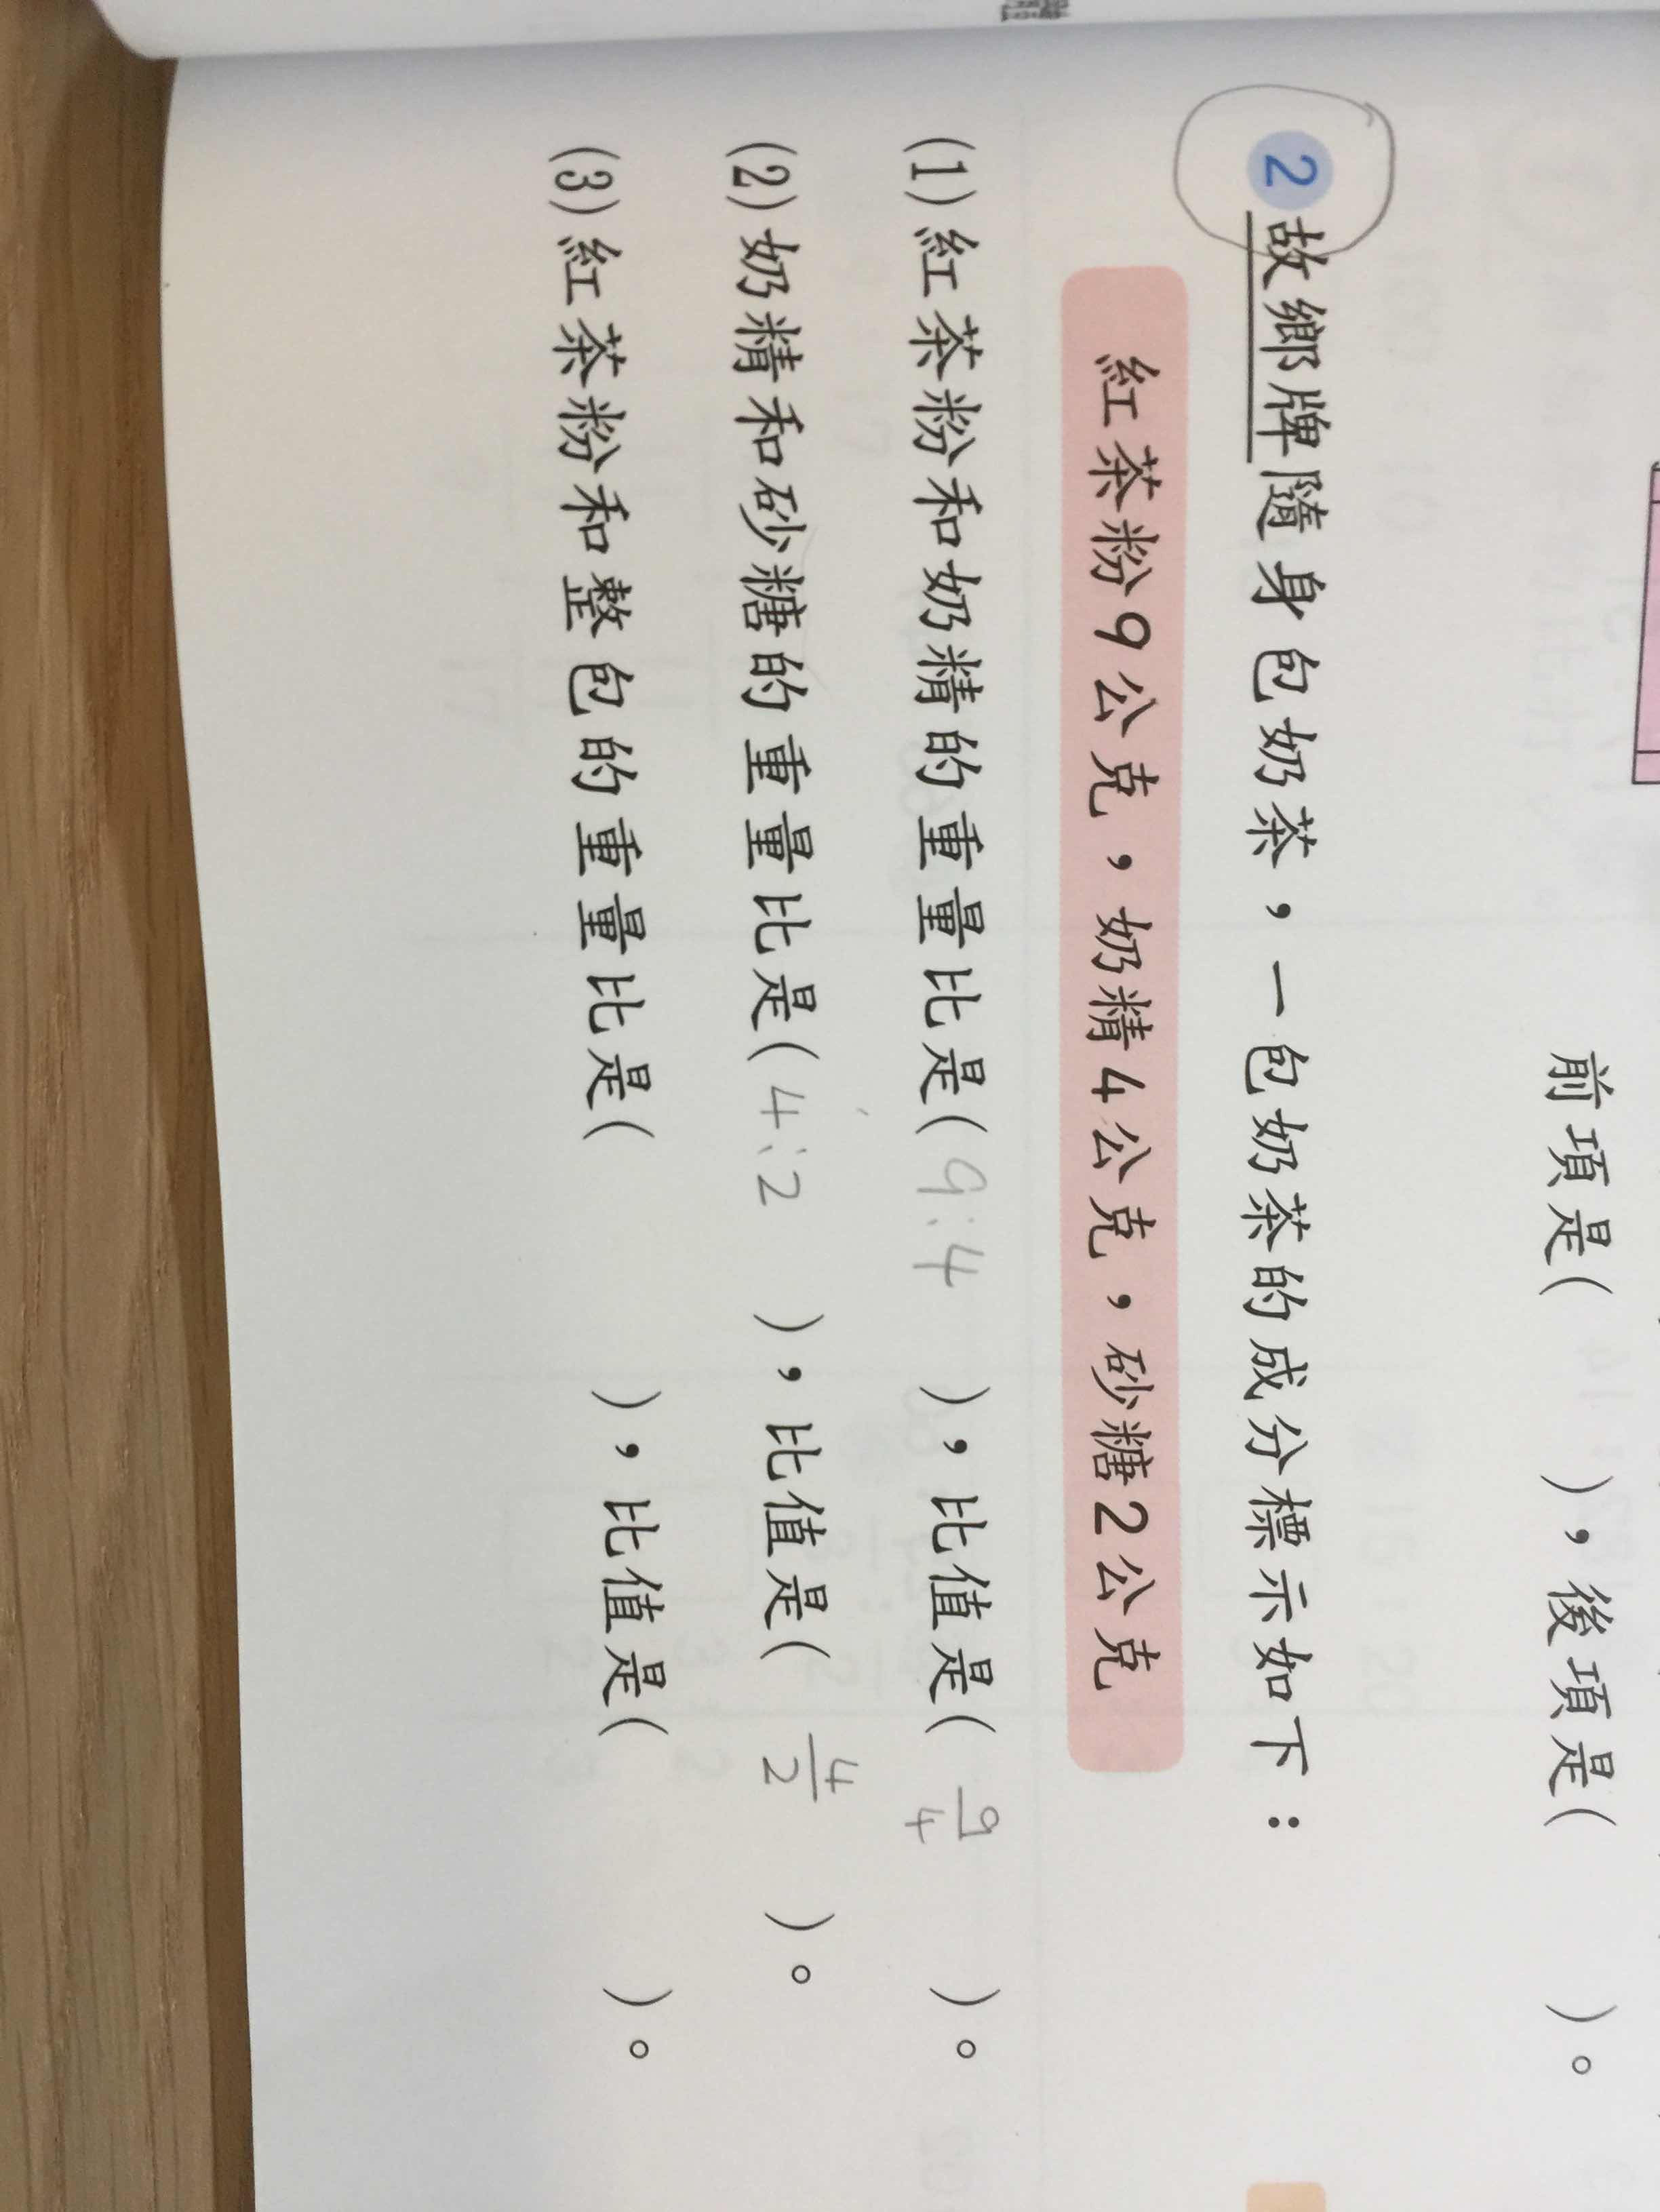 前項是( )，後項是( )。
2 故鄉牌隨身包奶茶，一包奶茶的成分標示如下：
紅茶粉9公克，奶精4公克，砂糖2公克
(1)紅茶粉和奶精的重量比是( 9:4 )，比值是( 9/4 )。
(2)奶精和砂糖的重量比是( 4:2 )，比值是( 4/2 )。
(3)紅茶粉和整包的重量比是( )，比值是( )。